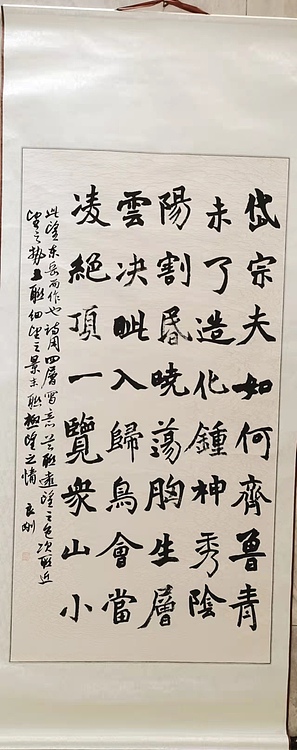 岱宗夫如何齊魯青
未了造化鍾神秀陰
陽割昏曉蕩胸生層
雲决眦入歸鳥會當
凌絕頂一覽衆山小
此望东岳而作也詩用四層寫意首聯遠望之色次聯近
望之势三聯細望之景末聯極望之情 良刚